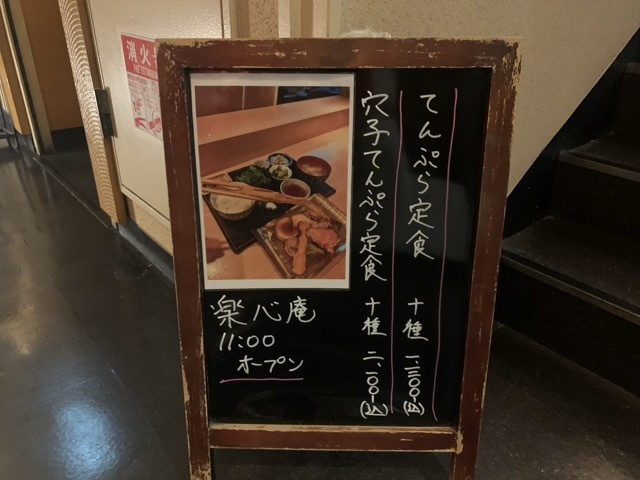 てんぷら定食 十種 一、三〇〇-(込)
穴子てんぷら定食 十種 二、一〇〇-(込)
楽心庵
11:00
オープン
消火